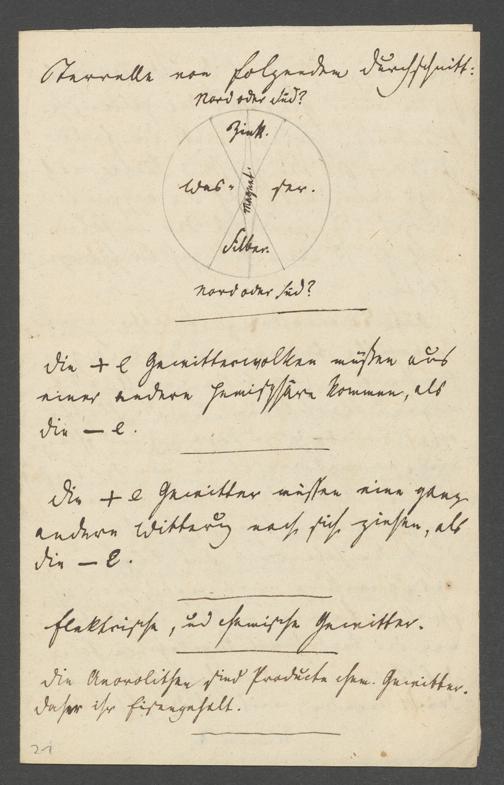 Terrelle von folgendem Durchschnitt:
Nord oder Süd?
Zink.
Was- Magnet. ser.
Silber.
Nord oder Süd?
Die + E Gewitterwolken müssen aus
einer andern Hemisphäre kommen, als
die — E.
Die + E Gewitter müssen eine ganz
andere Witterung nach sich ziehen, als
die — E.
Elektrische, und chemische Gewitter.
Die Aërolithen sind Producte chem. Gewitter.
Daher ihr Eisengehalt.
21